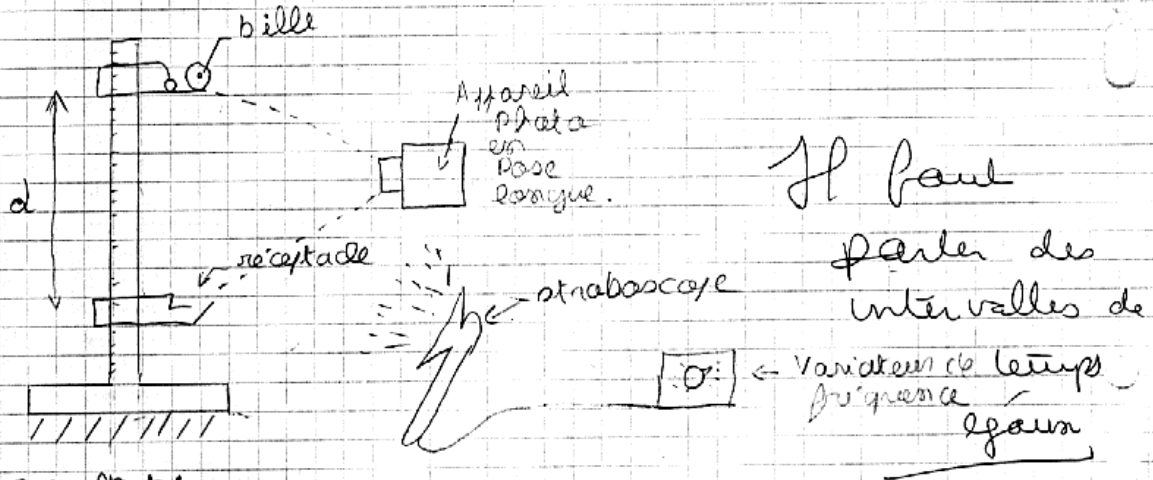 bille
Appareil
Photo
en
Pose
longue.
d
réceptacle
stroboscope
Variateur de
fréquence
Il faut
parler des
intervalles de
temps
égaux